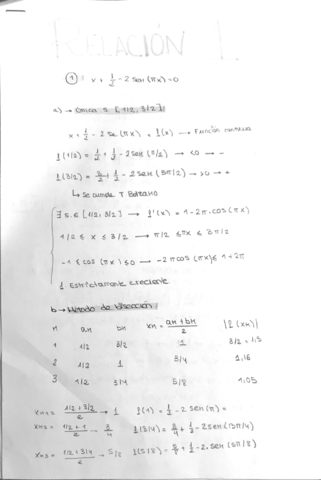 RELACIÓN 1
① x + 1/2 - 2 sen (πx) = 0
a) → Única s [1/2, 3/2]
x + 1/2 - 2 sen (πx) = f(x) → Función continua
f(1/2) = 1/2 + 1/2 - 2 sen (π/2) → <0 → -
f(3/2) = 3/2 + 1/2 - 2 sen (3π/2) → >0 → +
↳ Se cumple T Bolzano
∃ s ∈ [1/2, 3/2] → f'(x) = 1 - 2π cos (πx)
1/2 ≤ x ≤ 3/2 → π/2 ≤ πx ≤ 3π/2
-1 ≤ cos (πx) ≤ 0 → -2π cos(πx) ≤ 1+2π
f Estrictamente creciente
b → Método de bisección
n an bn xn = an + bn / 2 |f(xn)|
1 1/2 3/2 1 3/2 = 1,5
2 1/2 1 3/4 1,16
3 1/2 3/4 5/8 1,05
xn=1 = 1/2 + 3/2 / 2 → 1 f(1) = 1 + 1/2 - 2 sen (π) =
xn=2 = 1/2 + 1 / 2 → 3/4 f(3/4) = 3/4 + 1/2 - 2 sen (3π/4)
xn=3 = 1/2 + 3/4 / 2 → 5/8 f(5/8) = 5/8 + 1/2 - 2 · sen (5π/8)